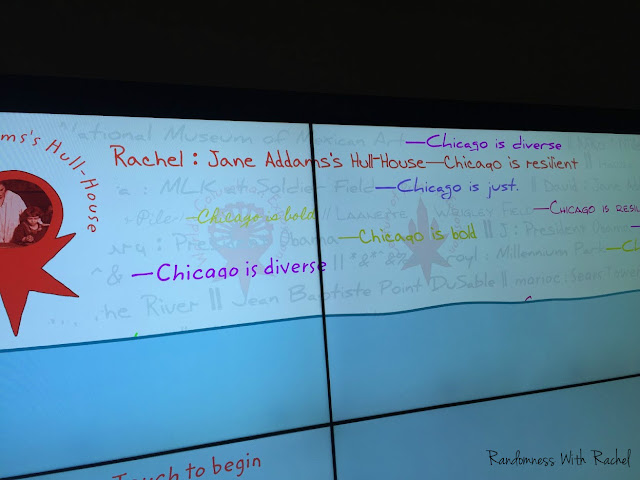 ms's Hull-House
National Museum of Mexican Art
—Chicago is diverse
Rachel : Jane Addams's Hull-House—Chicago is resilient
MLK at Soldier Field
—Chicago is just.
David : Jane
—Chicago is bold || Wrigley Field
—Chicago is resil
President Obama
—Chicago is bold
|| J : President Obam
—Ch
—Chicago is diverse
|| *&*&
royl : Millennium Park
the River || Jean Baptiste Point DuSable || marioc : Sears Tower
Touch to begin
Randomness With Rachel